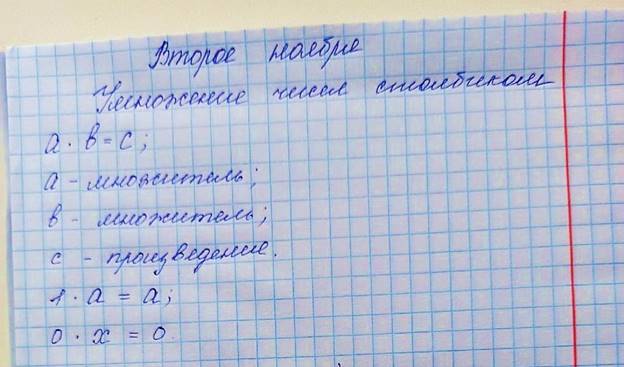 Второе ноября
Умножение чисел столбиком
а · в = с;
а - множитель;
в - множитель;
с - произведение.
1 · а = а;
0 · х = 0.